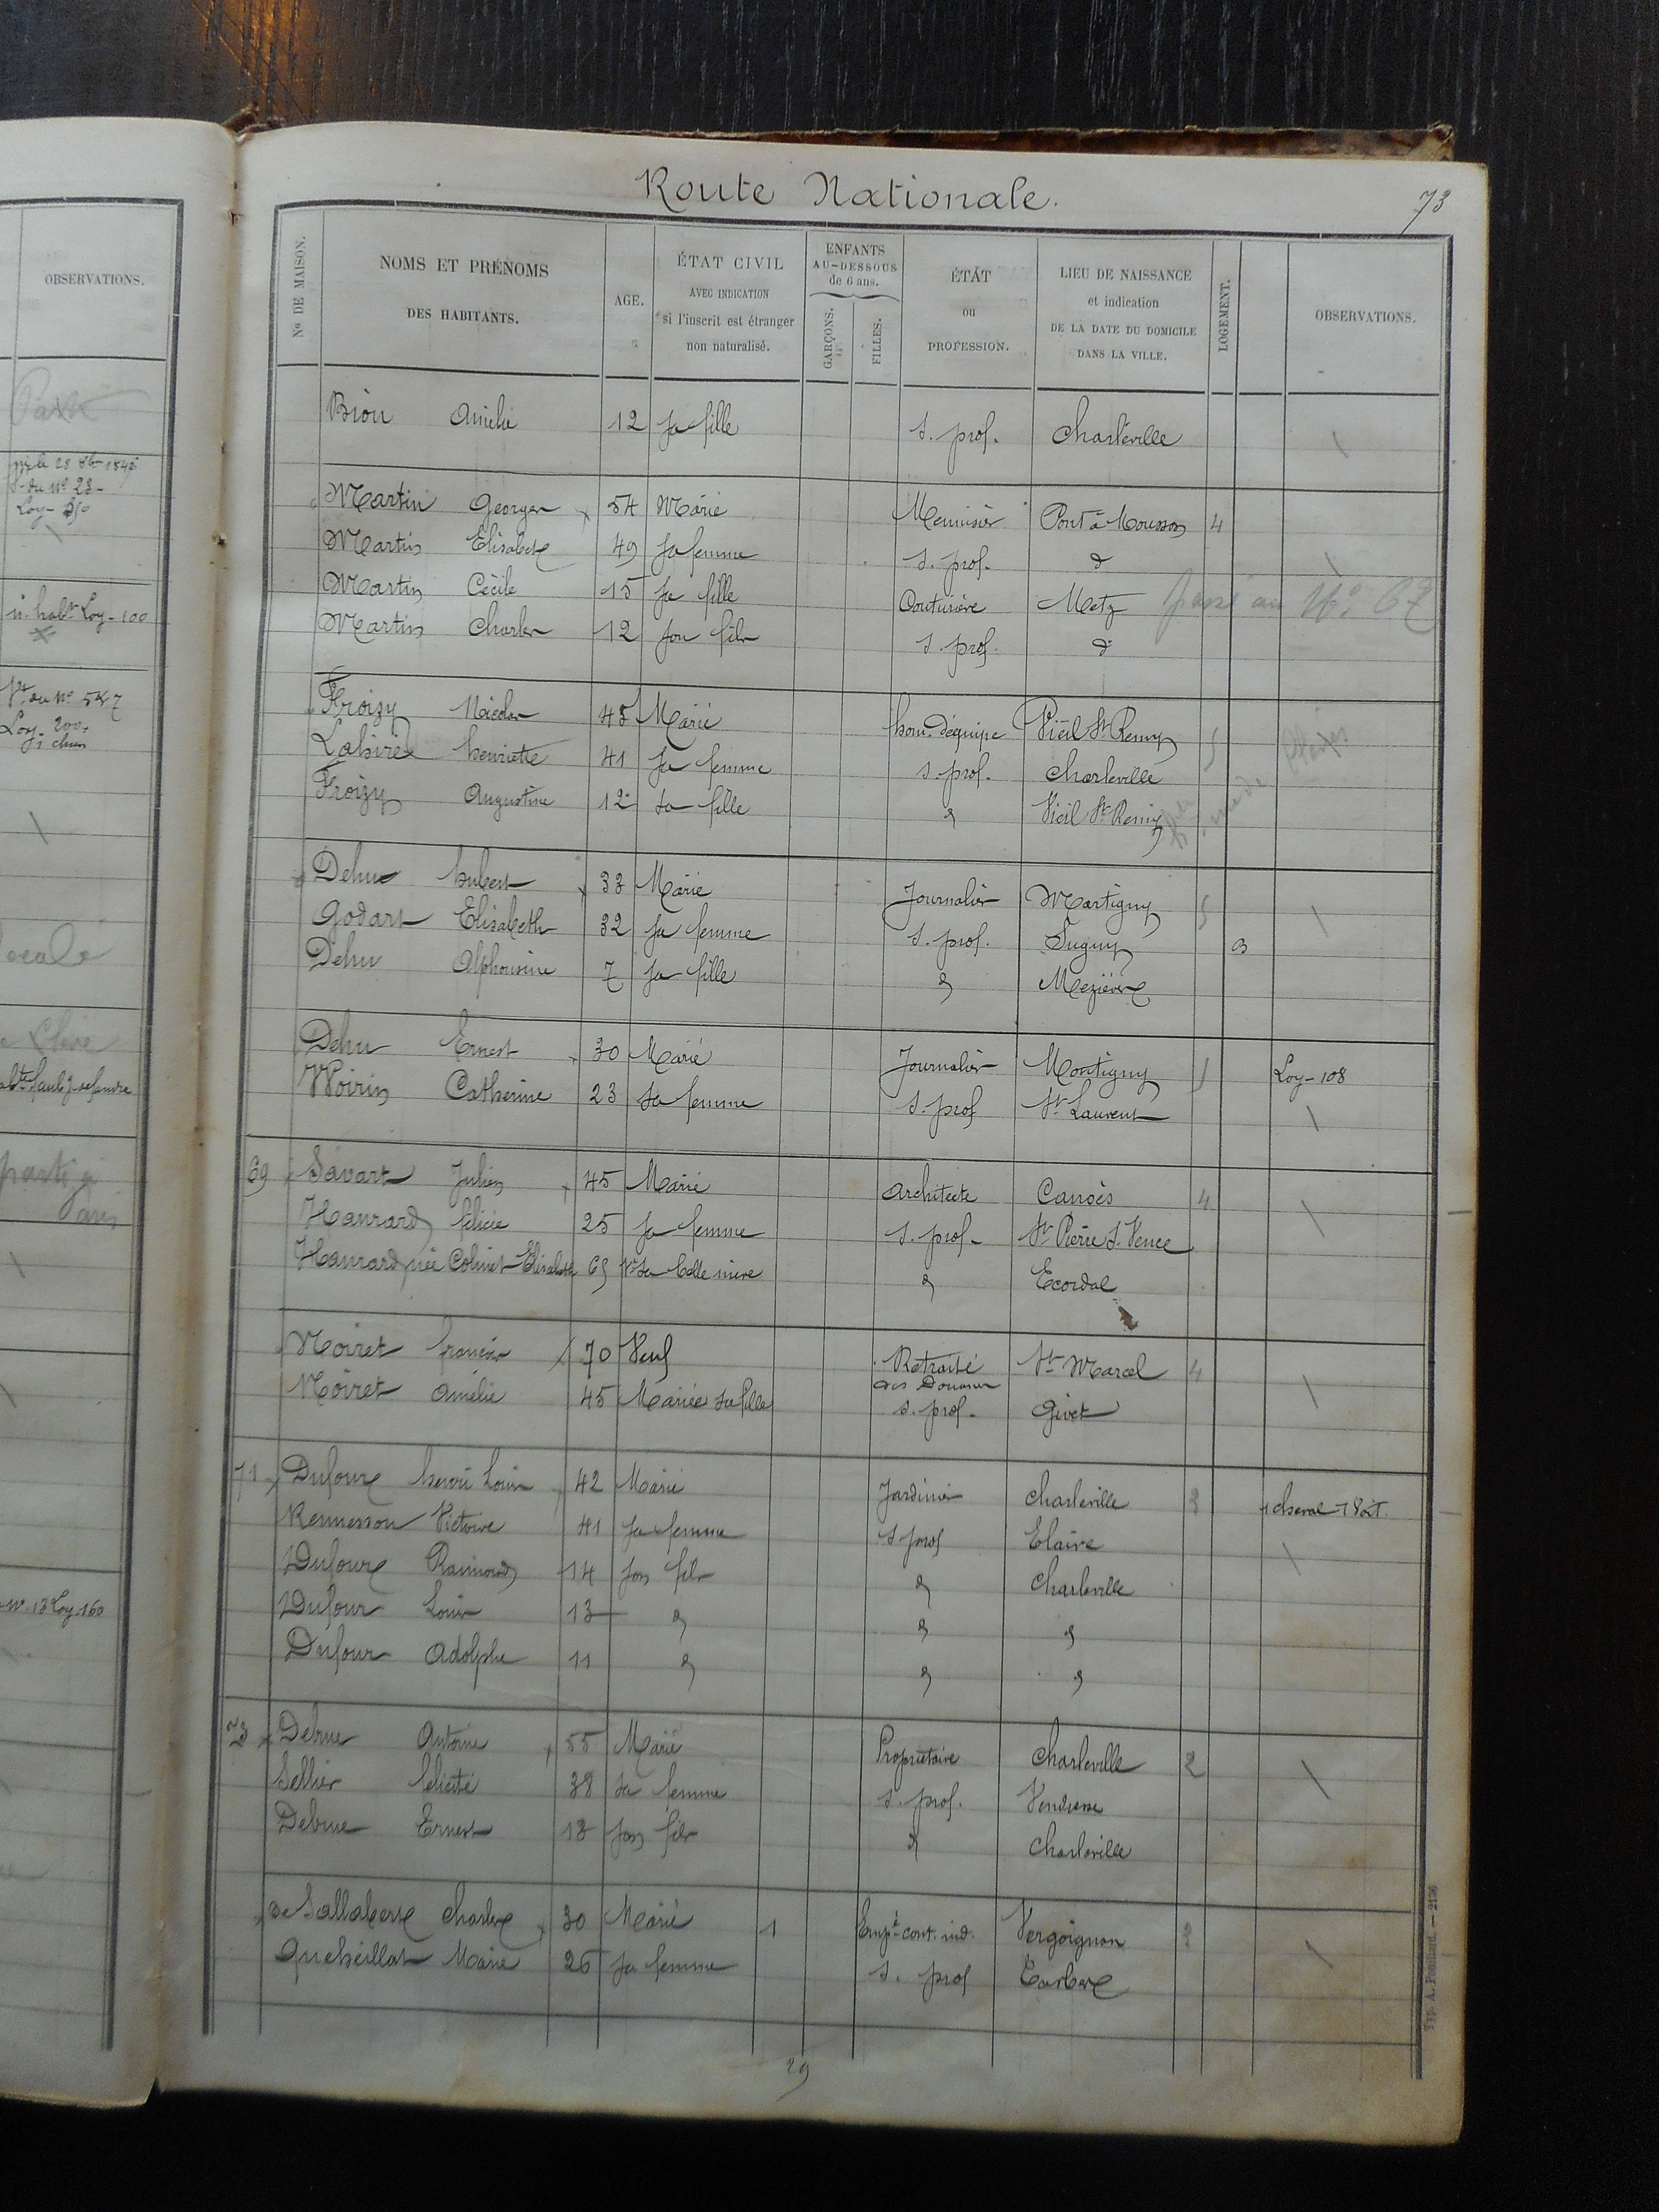 Route Nationale.
73
OBSERVATIONS.
Nº DE MAISON.
NOMS ET PRÉNOMS
DES HABITANTS.
AGE.
ÉTAT CIVIL
AVEC INDICATION
si l'inscrit est étranger
non naturalisé.
ENFANTS
AU-DESSOUS
de 6 ans.
GARÇONS.
FILLES.
ÉTAT
ou
PROFESSION.
LIEU DE NAISSANCE
et indication
DE LA DATE DU DOMICILE
DANS LA VILLE.
LOGEMENT.
OBSERVATIONS.
Bion Amélie 12 sa fille s. prof. Charleville
Martin Georges 54 Marié Menuisier Pont à Mousson 4
Martin Elisabeth 49 sa femme s. prof. d
Martin Cécile 15 sa fille Couturière Metz passé au Nº 67
Martin Charles 12 son fils s. prof. d
Froizy Nicolas 45 Marié hom. d'équipe Vieil St Remy
Labire henriette 41 sa femme s. prof. Charleville
Froizy Augustine 12 sa fille d Vieil St Remy
Dehu hubert 33 Marié Journalier Martigny
Godart Elisabeth 32 sa femme s. prof. Sugny
Dehu Alphonsine 7 sa fille d Mezières
Dehu Ernest 30 Marié Journalier Montigny Loy-108
Woirin Catherine 23 sa femme s. prof St Laurent
69 Savart Julien 45 Marié Architecte 4
Hanrard felicie 25 sa femme s. prof. St Pierre s. Vence
Hanrard née Colinet Elisabeth 65 Vve sa belle mère d Ecordal
Noiret francois 70 Veuf Retraité des Douanes St Marcel 4
Noiret Amélie 45 Mariée sa fille s. prof. Givet
71 Dufour henri Louis 42 Marié Jardinier Charleville 3 1 cheval 1 Voit.
Rennesson Victoire 41 sa femme s. prof Elaire
Dufour Raimond 14 son fils d Charleville
Dufour Louis 13 d d d
Dufour Adolphe 11 d d d
73 Debrue Antoine 55 Marié Propriétaire Charleville 2
Sellier félicité 38 sa femme s. prof. Vendresse
Debrue Ernest 13 son fils d Charleville
de Sallaberre Charles 30 Marié 1 Empé cont. ind. Vergoignan 3
Queheillat Marie 26 sa femme s. prof Tarbes
29
Typ. A. Pouillard. — 2136